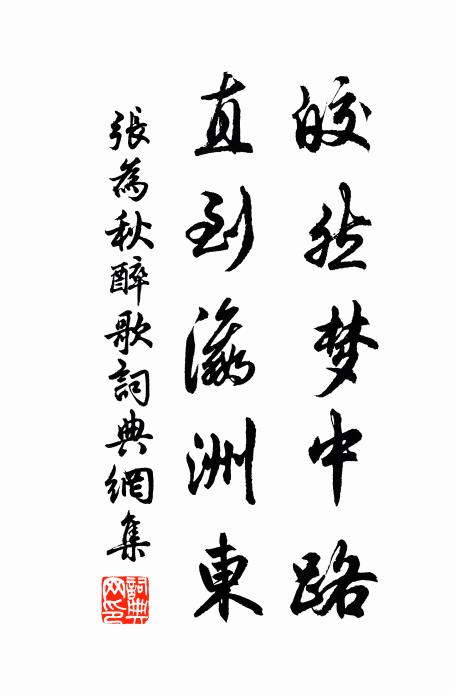 皎然梦中路
直到瀛洲東
張為秋醉歌詞典網集
詞典
网印